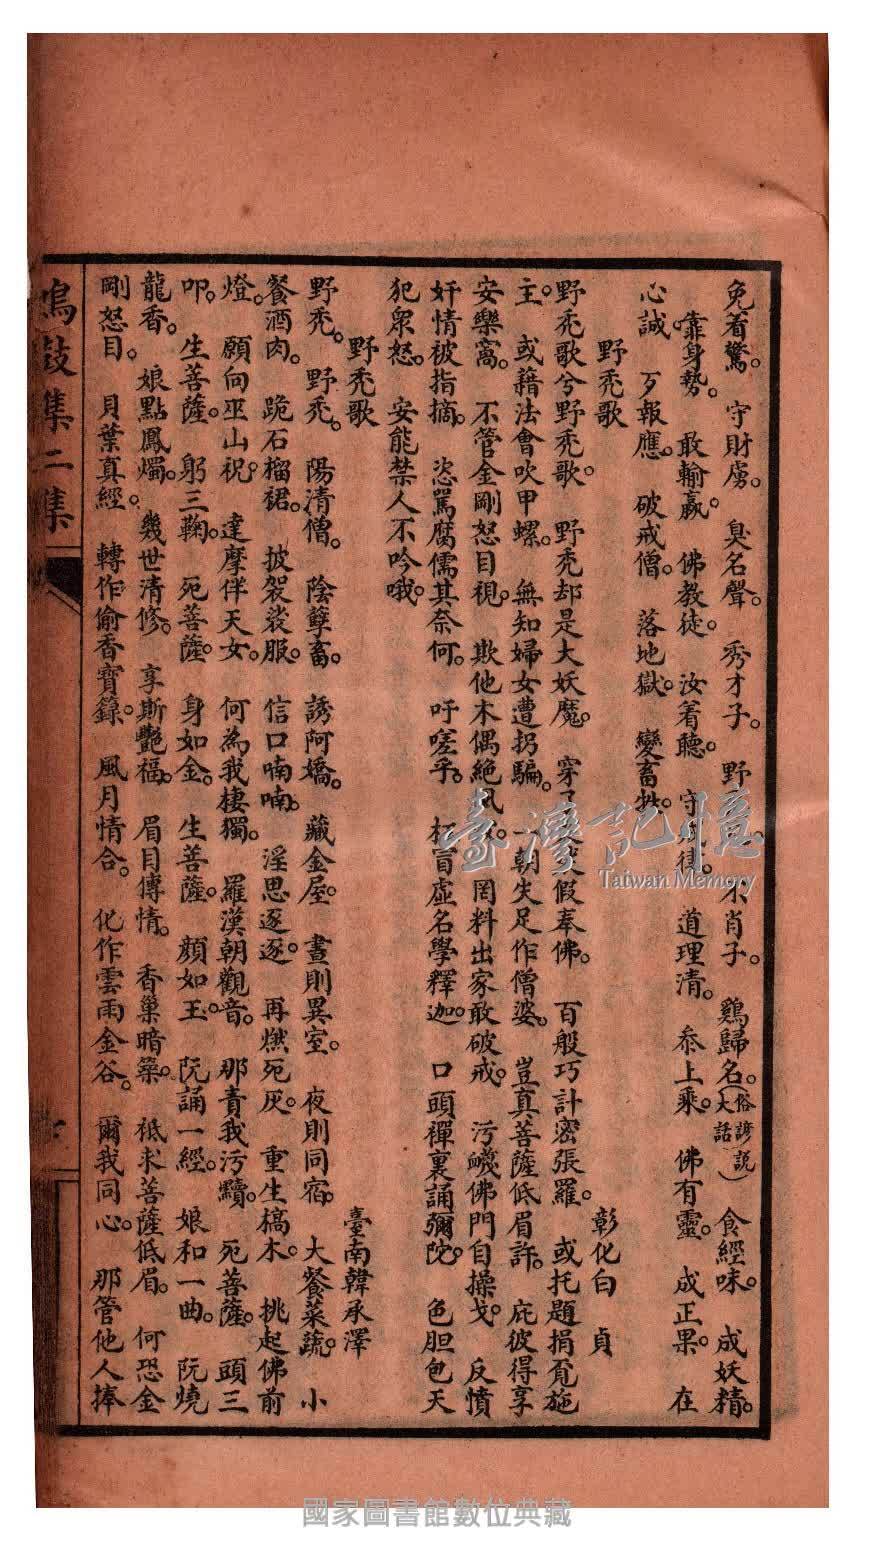 免着驚。守財虜。臭名聲。秀才子。野 不肖子。鷄歸名。(俗諺說大話)食經味。成妖精。
靠身勢。敢輸嬴。佛教徒。汝着聽。守 律。道理清。忝上乘。佛有靈。成正果。在
心誠。歹報應。破戒僧。落地獄。變畜牲。
野禿歌 彰化白 貞
野禿歌兮野禿歌。野禿却是大妖魔。穿 假奉佛。百般巧計密張羅。或托題捐覓施
主。或藉法會吹甲螺。無知婦女遭拐騙。一朝失足作僧婆。豈真菩薩低眉許。庇彼得享
安樂窩。不管金剛怒目視。欺他木偶絕 罔料出家敢破戒。污衊佛門自操戈。反憤
奸情被指摘。恣罵腐儒其奈何。吁嗟乎。枉冒虛名學釋迦。口頭禪裏誦彌陀。色胆包天
犯衆怒。安能禁人不吟哦。
野禿歌 臺南韓承澤
野禿。野禿。陽清僧。陰孽畜。誘阿嬌。藏金屋。晝則異室。夜則同宿。大餐菜蔬。小
餐酒肉。跪石榴裙。披袈裟服。信口喃喃。淫思逐逐。再燃死灰。重生槁木。挑起佛前
燈。願向巫山祝。達摩伴天女。何為我棲獨。羅漢朝觀音。那責我污黷。死菩薩。頭三
叩。生菩薩。躬三鞠。死菩薩。身如金。生菩薩。顏如玉。阮誦一經。娘和一曲。阮燒
龍香。娘點鳳燭。幾世清修。享斯艷福。眉目傳情。香巢暗築。祗求菩薩低眉。何恐金
剛怒目。貝葉真經。轉作偷香寶籙。風月情合。化作雲雨金谷。爾我同心。那管他人捧
鳴鼓集二集
臺灣記憶
Taiwan Memory
國家圖書館數位典藏